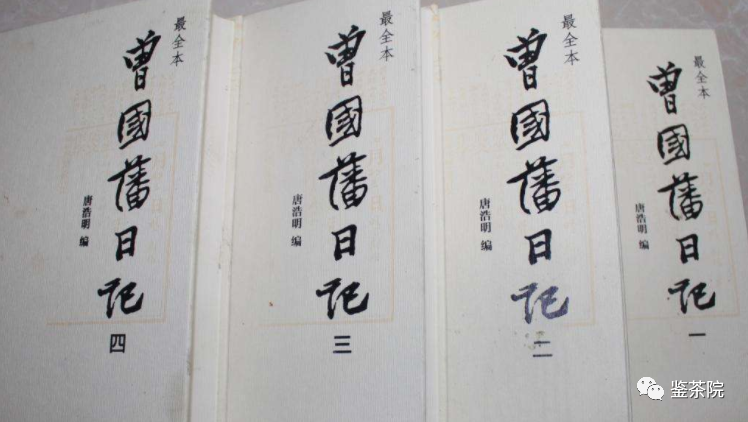 最全本
曾國藩日记
唐浩明 编
四
最全本
曾國藩日记
唐浩明 编
三
最全本
曾國藩日记
唐浩明 编
二
最全本
曾國藩日记
唐浩明 编
一
鉴茶院